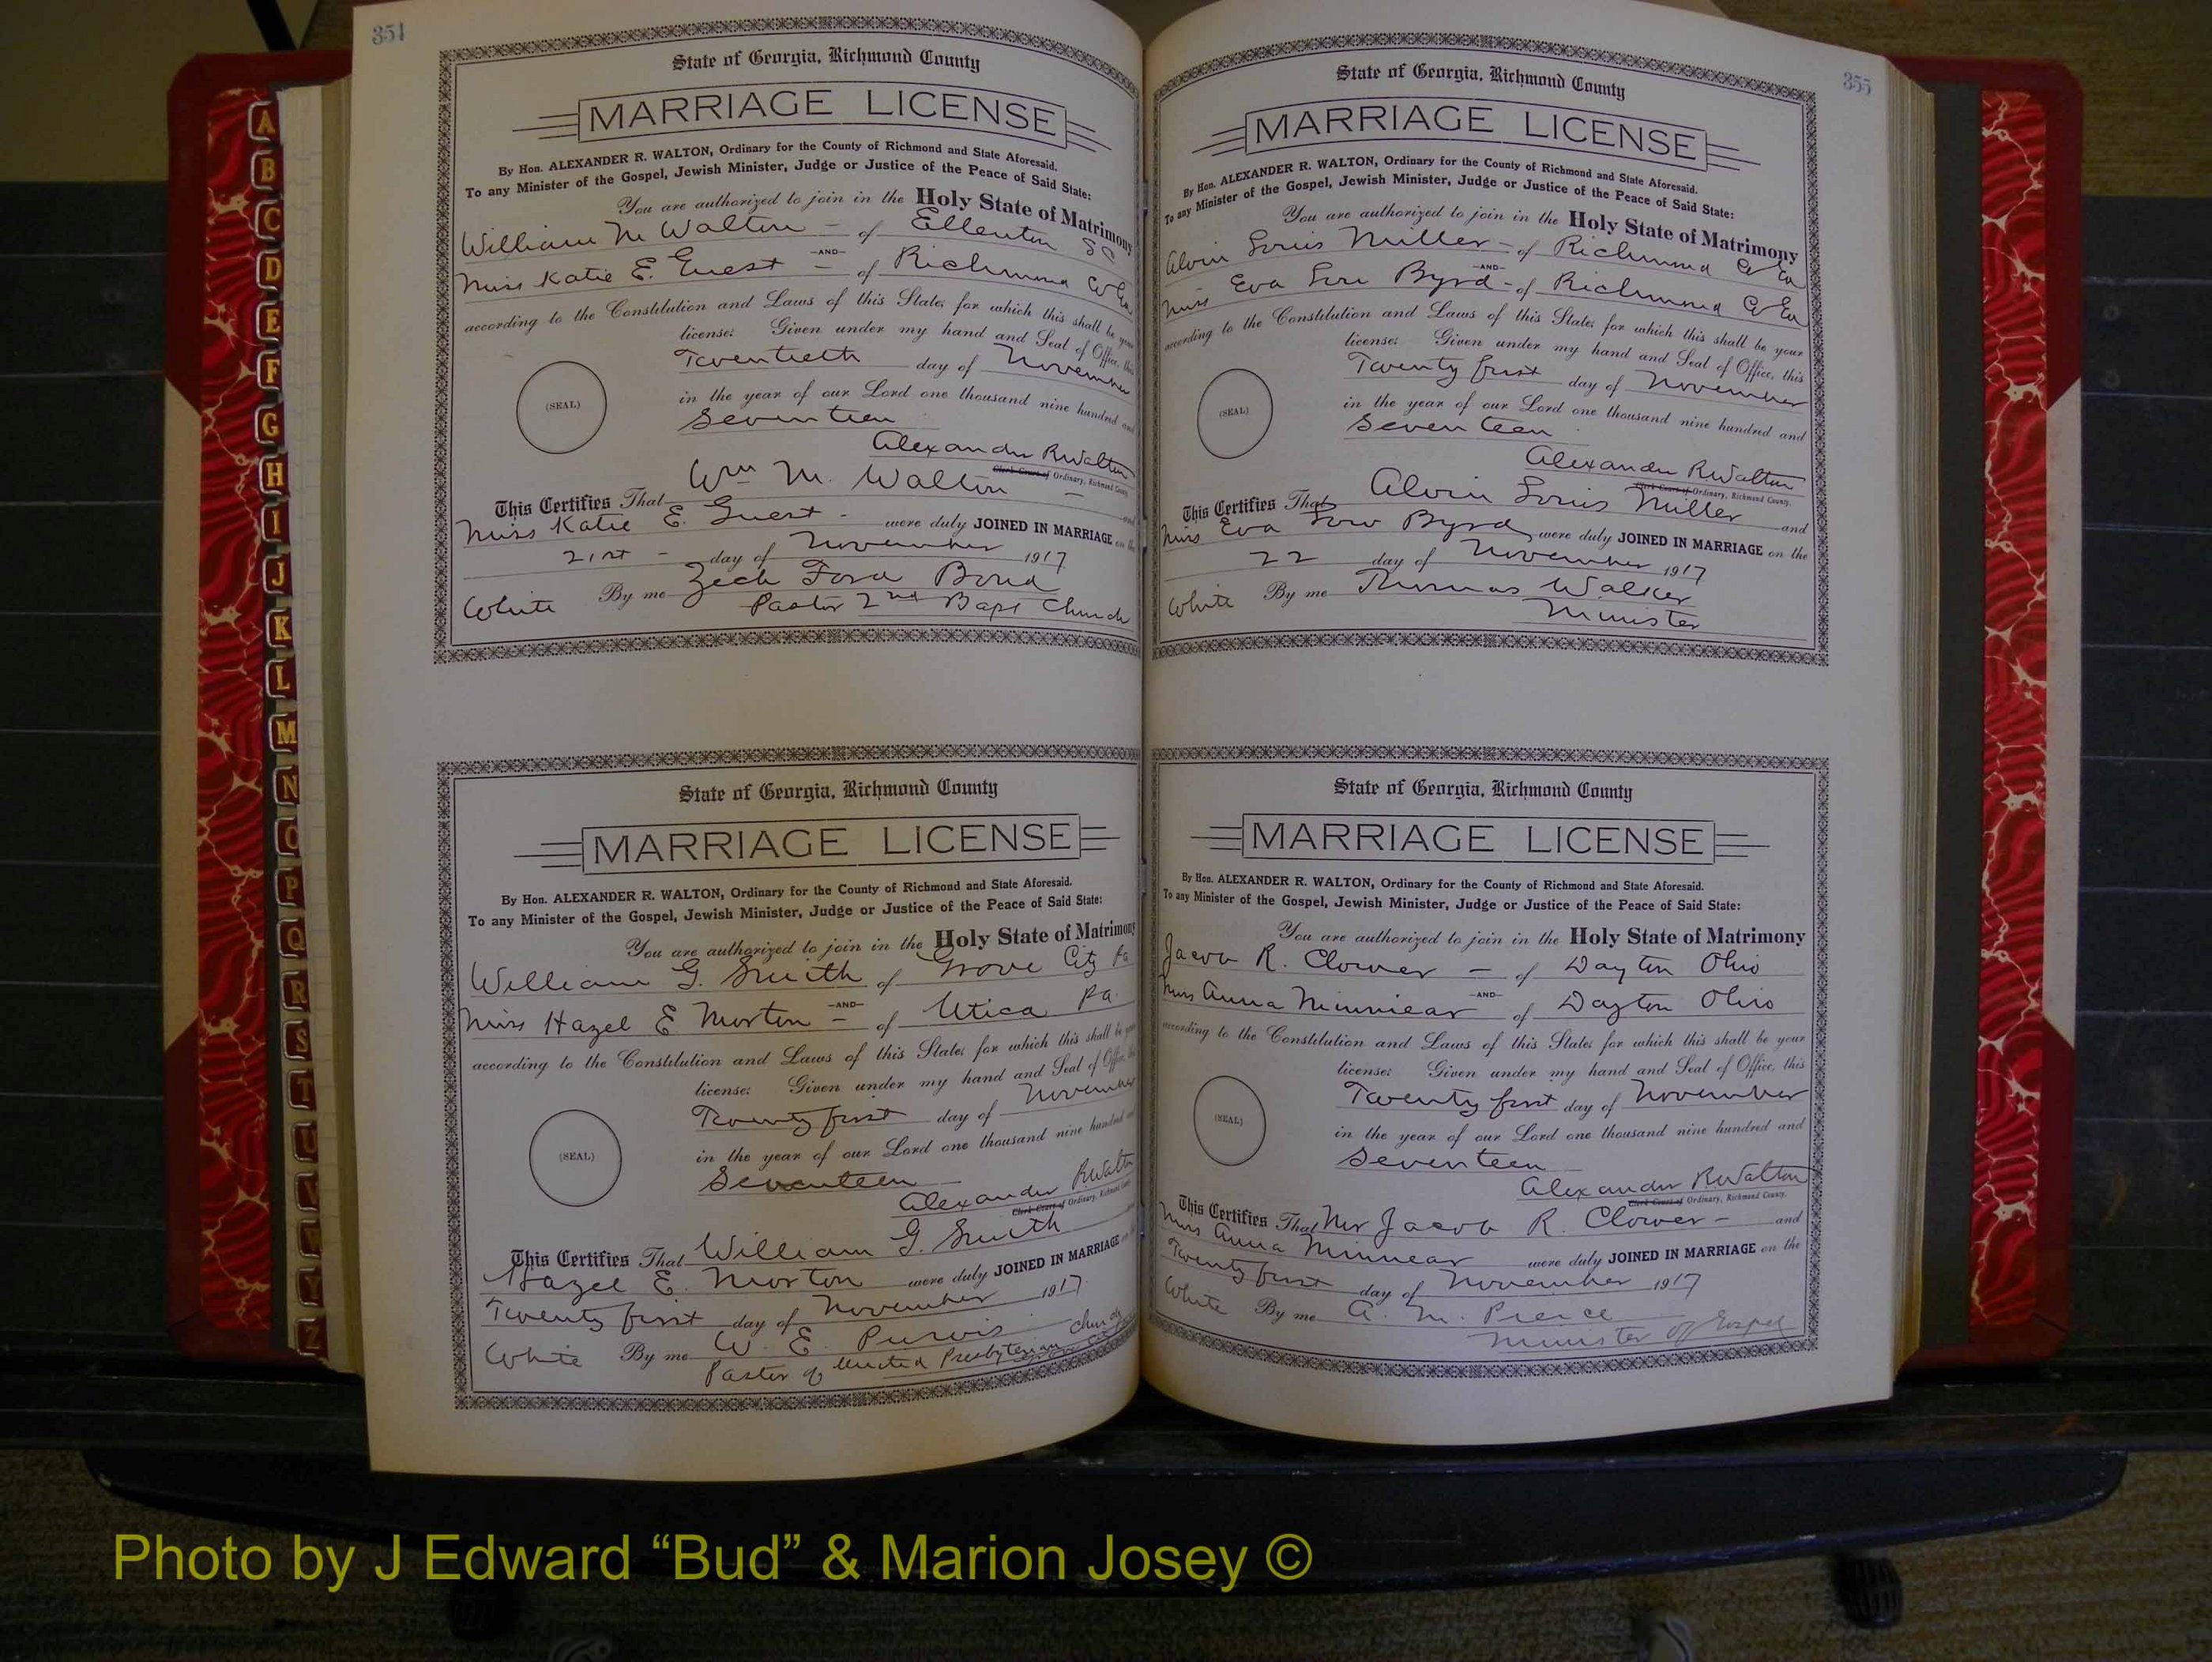 354
State of Georgia, Richmond County
MARRIAGE LICENSE
By Hon. ALEXANDER R. WALTON, Ordinary for the County of Richmond and State Aforesaid.
To any Minister of the Gospel, Jewish Minister, Judge or Justice of the Peace of Said State:
You are authorized to join in the Holy State of Matrimony
William M Walton - of Ellenton SC
-AND-
Miss Katie E. Guest - of Richmond Co Ga
according to the Constitution and Laws of this State; for which this shall be your
license: Given under my hand and Seal of Office, this
Twentieth day of November
in the year of our Lord one thousand nine hundred and
Seventeen
(SEAL)
Alexander R Walton
Clerk Court of Ordinary, Richmond County
This Certifies That Wm M. Walton - and
Miss Katie E. Guest - were duly JOINED IN MARRIAGE on the
21st - day of November 1917
White By me Zech Ford Bond
Pastor 2nd Bapt Church
State of Georgia, Richmond County
MARRIAGE LICENSE
By Hon. ALEXANDER R. WALTON, Ordinary for the County of Richmond and State Aforesaid.
To any Minister of the Gospel, Jewish Minister, Judge or Justice of the Peace of Said State:
You are authorized to join in the Holy State of Matrimony
William G. Smith of Grove City Pa
-AND-
Miss Hazel E Morton - of Utica Pa.
according to the Constitution and Laws of this State; for which this shall be your
license: Given under my hand and Seal of Office, this
Twenty first day of November
in the year of our Lord one thousand nine hundred and
Seventeen
(SEAL)
Alexander R Walton
Clerk Court of Ordinary, Richmond County
This Certifies That William G. Smith
Hazel E. Morton were duly JOINED IN MARRIAGE on the
Twenty first day of November 1917
White By me W. E. Purvis
Pastor of United Presbyterian Church
355
State of Georgia, Richmond County
MARRIAGE LICENSE
By Hon. ALEXANDER R. WALTON, Ordinary for the County of Richmond and State Aforesaid.
To any Minister of the Gospel, Jewish Minister, Judge or Justice of the Peace of Said State:
You are authorized to join in the Holy State of Matrimony
Alvin Louis Miller - of Richmond Co Ga
-AND-
Miss Eva Lou Byrd - of Richmond Co Ga
according to the Constitution and Laws of this State; for which this shall be your
license: Given under my hand and Seal of Office, this
Twenty first day of November
in the year of our Lord one thousand nine hundred and
Seventeen
(SEAL)
Alexander R Walton
Clerk Court of Ordinary, Richmond County.
This Certifies That Alvin Louis Miller and
Miss Eva Lou Byrd were duly JOINED IN MARRIAGE on the
22 day of November 1917
White By me Thomas Walker
Minister
State of Georgia, Richmond County
MARRIAGE LICENSE
By Hon. ALEXANDER R. WALTON, Ordinary for the County of Richmond and State Aforesaid.
To any Minister of the Gospel, Jewish Minister, Judge or Justice of the Peace of Said State:
You are authorized to join in the Holy State of Matrimony
Jacob R. Clower - of Dayton Ohio
-AND-
Miss Anna Minniear of Dayton Ohio
according to the Constitution and Laws of this State; for which this shall be your
license: Given under my hand and Seal of Office, this
Twenty first day of November
in the year of our Lord one thousand nine hundred and
Seventeen
(SEAL)
Alexander R Walton
Clerk Court of Ordinary, Richmond County.
This Certifies That Mr Jacob R. Clower - and
Miss Anna Minnear were duly JOINED IN MARRIAGE on the
Twenty first day of November 1917
White By me A. M. Pierce
Minister of Gospel
A
B
C
D
E
F
G
H
I
J
K
L
M
N
O
P
Q
R
S
T
U
V
W
Y
Z
Photo by J Edward “Bud” & Marion Josey ©